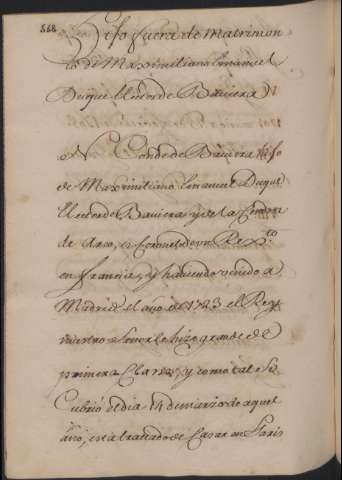 568
Hijo fuera de Matrimon
io de Maximiliano Emanuel
Duque Elector de Baviera
El Conde de Baviera hijo
de Maximiliano Emanuel Duque
Elector de Baviera y de la Condesa
de Arco, es Coronel de un Rex.to
en Francia, y haviendo venido a
Madrid el año de 1723 el Rey
nuestro Señor le hizo grande de
primera Clase, y como tal se
Cubrió el dia 14 de marzo de aquel
año, està tratado de Casar en Paris